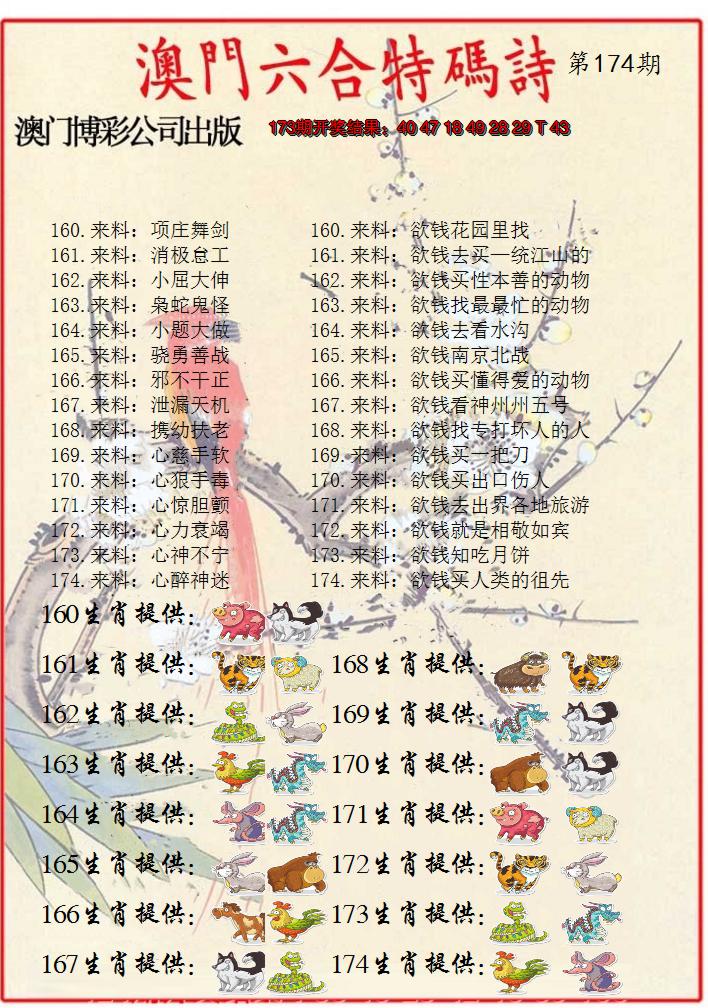 澳門六合特碼詩 第174期
澳门博彩公司出版 173期开奖结果：40 47 18 49 28 29 T 43
160.来料：项庄舞剑 160.来料：欲钱花园里找
161.来料：消极怠工 161.来料：欲钱去买一统江山的
162.来料：小屈大伸 162.来料：欲钱买性本善的动物
163.来料：枭蛇鬼怪 163.来料：欲钱找最最忙的动物
164.来料：小题大做 164.来料：欲钱去看水沟
165.来料：骁勇善战 165.来料：欲钱南京北战
166.来料：邪不干正 166.来料：欲钱买懂得爱的动物
167.来料：泄漏天机 167.来料：欲钱看神州州五号
168.来料：携幼扶老 168.来料：欲钱找专打坏人的人
169.来料：心慈手软 169.来料：欲钱买一把刀
170.来料：心狠手毒 170.来料：欲钱买出口伤人
171.来料：心惊胆颤 171.来料：欲钱去出界各地旅游
172.来料：心力衰竭 172.来料：欲钱就是相敬如宾
173.来料：心神不宁 173.来料：欲钱知吃月饼
174.来料：心醉神迷 174.来料：欲钱买人类的祖先
160生肖提供：
161生肖提供： 168生肖提供：
162生肖提供： 169生肖提供：
163生肖提供： 170生肖提供：
164生肖提供： 171生肖提供：
165生肖提供： 172生肖提供：
166生肖提供： 173生肖提供：
167生肖提供： 174生肖提供：